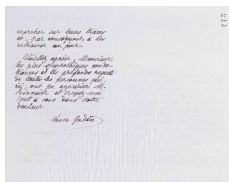 marcher sur leurs traces
et, par conséquent, à les
retrouver un jour.
Veuillez agréer, Monsieur,
les plus sympathiques condo-
léances et les profonds regrets
de toutes les personnes qui,
ici, ont pu apprécier M.
et croyez-moi
tout à vous dans votre
douleur.